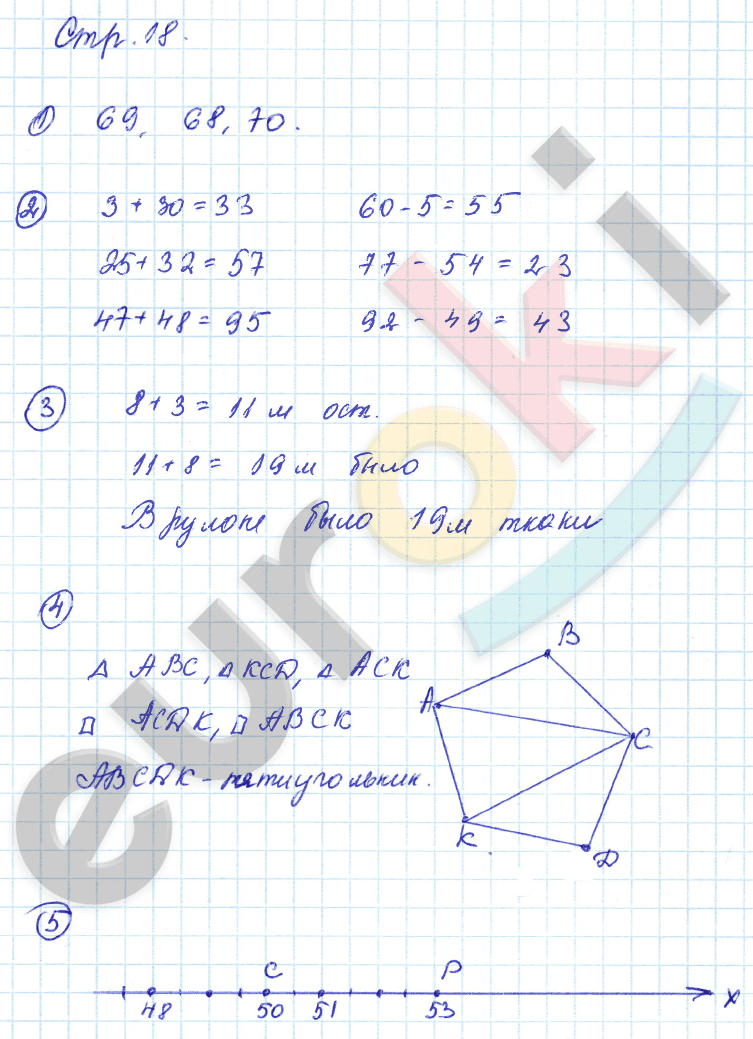 Стр. 18.
1) 69, 68, 70.
2) 3 + 30 = 33 60 - 5 = 55
25 + 32 = 57 77 - 54 = 23
47 + 48 = 95 92 - 49 = 43
3) 8 + 3 = 11 м ост.
11 + 8 = 19 м было
В рулоне было 19 м ткани
4)
△ ABC, △ KCD, △ ACK
□ ACDK, □ ABCK
ABCDK - пятиугольник.
B
A
C
K
D
5)
C P
48 50 51 53 x
euroki